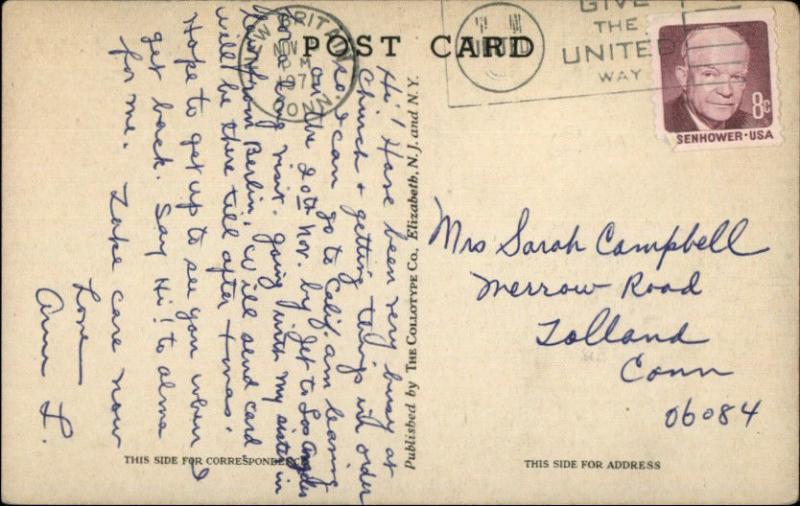 POST CARD
NEW BRITAIN
CONN
197
GIVE
THE
UNITED
WAY
8c
SENHOWER·USA
Hi! Have been very busy at
Church & getting things in order
so I can go to Calif. am leaving
on the 20th Nov. by jet to Los Angeles
for a long visit. going with my sister in
law from Berlin. Will send card
will be there till after Xmas.
Hope to get up to see you when I
get back. Say Hi! to Alma
for me. Take care now
Love
Ann L.
Published by THE COLLOTYPE CO., Elizabeth, N. J. and N. Y.
Mrs Sarah Campbell
Merrow Road
Tolland
Conn
06084
THIS SIDE FOR CORRESPONDENCE
THIS SIDE FOR ADDRESS